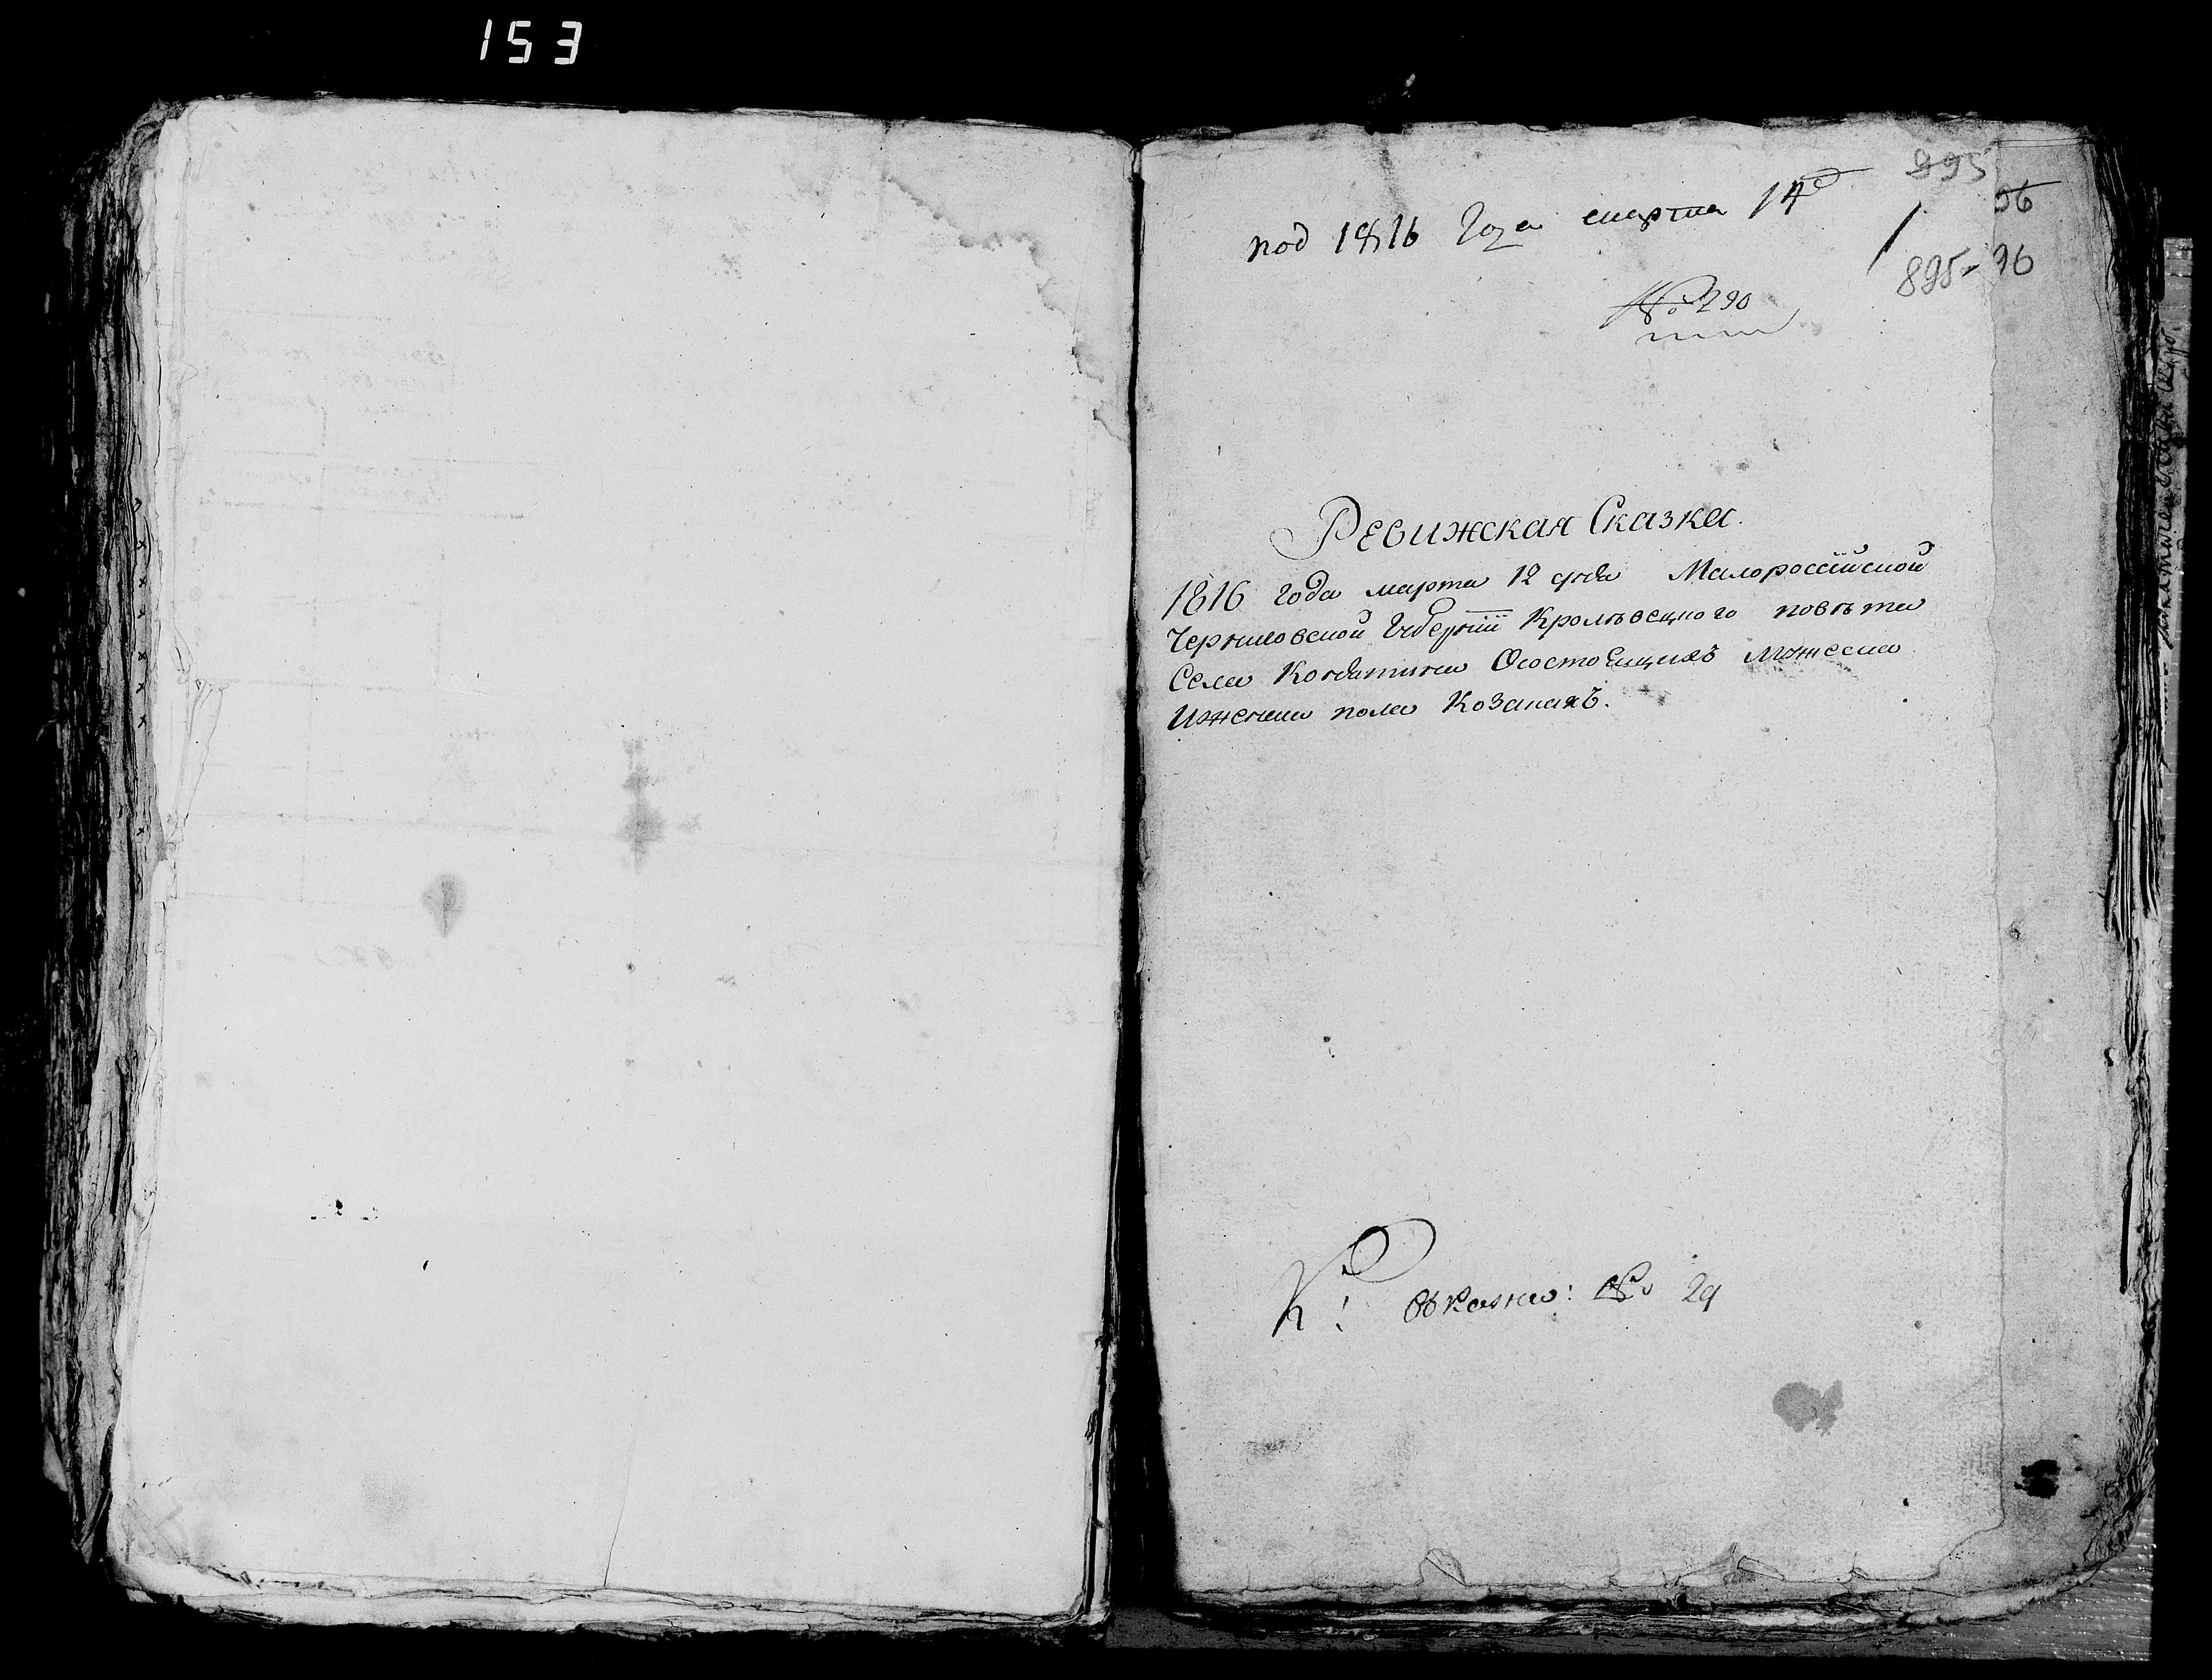 153
895
96
под 1816 года марта 14д
895-96
№ 290
Ревижская Сказка.
1816 года марта 12 дня Малороссійской
Черниговской Губерніи Кролевецкого повѣта
Села Кордашина Осостоящихъ Мужеска
Иженска пола Козакахъ.
К: № 29